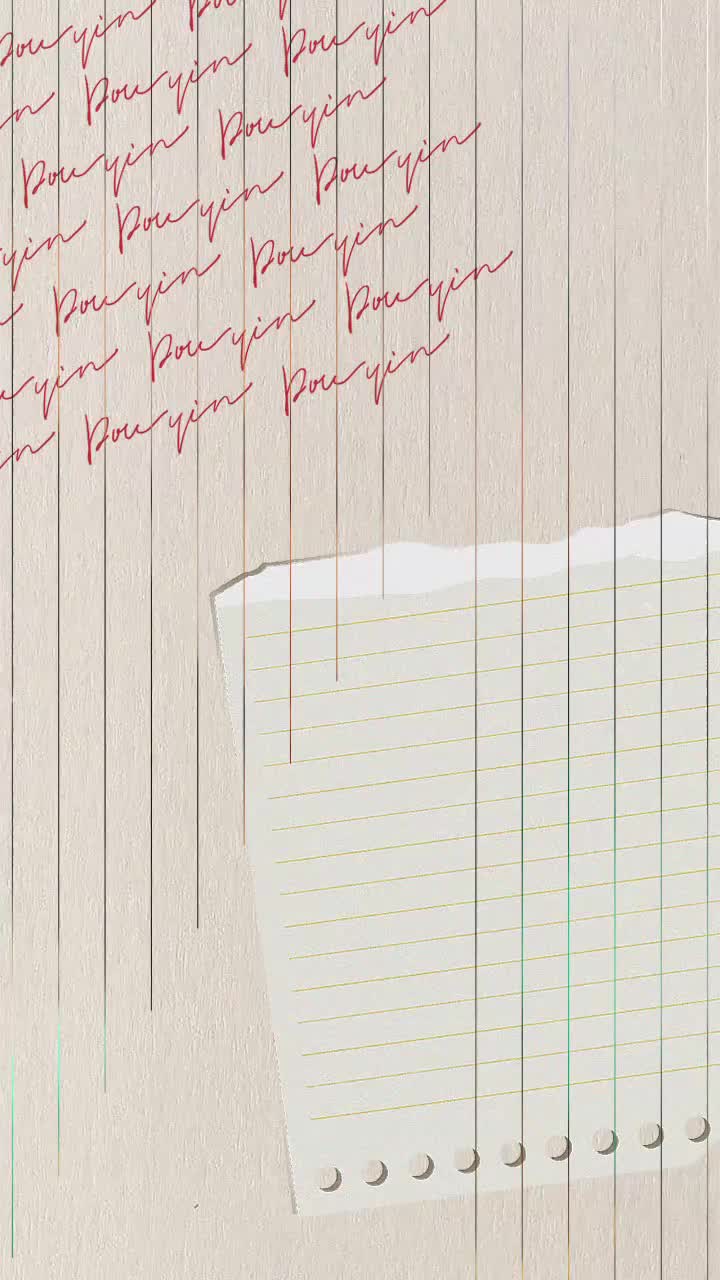 Douyin Dou
in Douyin Douyin
Douyin Douyin
yin Douyin Douyin
n Douyin Douyin
uyin Douyin Douyin
in Douyin Douyin